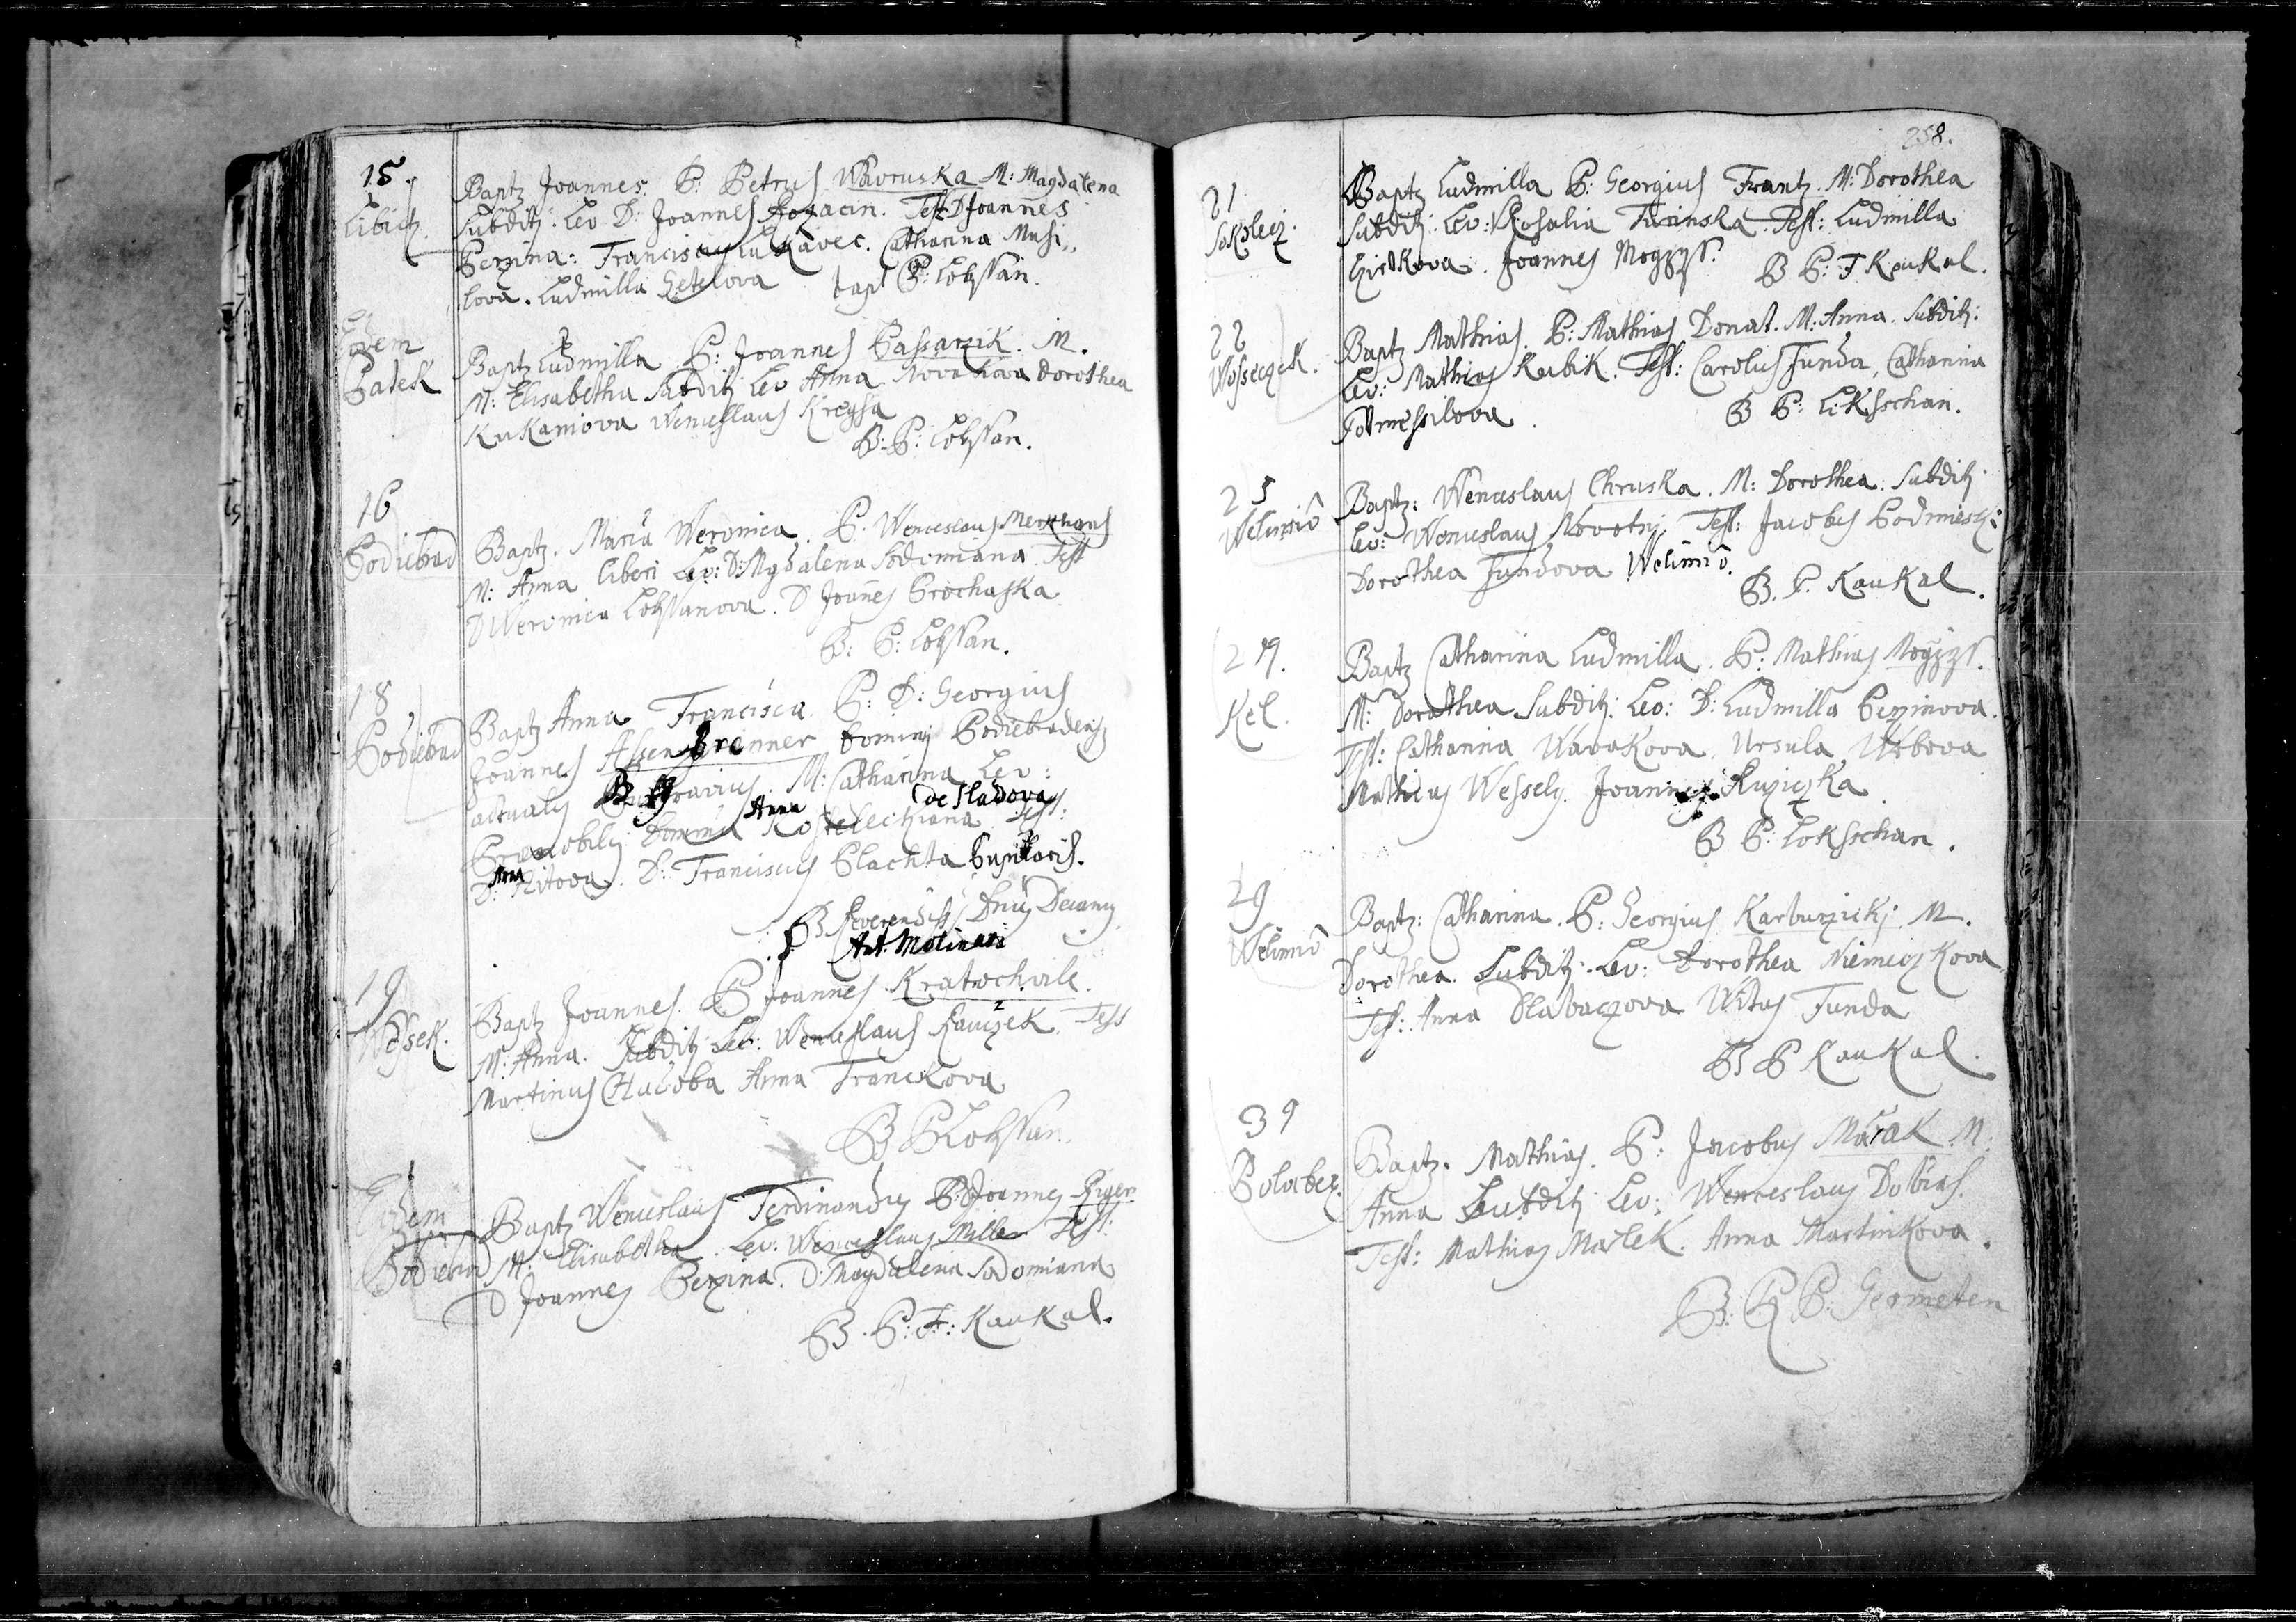 15.
Libicz.
Baptz Joannes. P: Petrus Wavruska M: Magdalena
Subditi. Lev D: Joannes Test D Joannes
Perzina: Franciscus Lukavec. Catharina Musi,,
lova. Ludmilla Getelova bapt P: Lokssan.
Eodem
Patek
Baptz Ludmilla P: Joannes Passarzik. M.
M: Elisabetha Subditi Lev Anna Novakova Dorothea
Kukaniova Wenceslaus Kregssa
B: P: Lokssan.
16
Podiebrad
Baptz. Maria Weronica. P. Wenceslaus
M: Anna liberi Lev: D: Mgdalena Sodomiana. Test
D Weronica Lokssanova. D Joannes Prochaska
B: P: Lokssan.
18
Podiebrad
Baptz Anna Francisca. P: D: Georgius
Joannes Assenbrenner Dominij Podiebradensis
actualis M: Catharina Lev:
Praenobilis Domina Anna Kostelecziana de Sladova Test:
D: Anna Ritova. D: Franciscus Plachta
B Reverendus Dnus Decanus
P Ant. Molinari
19
Wossek.
Baptz Joannes. P Joannes Kratochvile.
M: Anna. Subditi Lev: Wenceslaus Hawczek. Test
Martinus Chaloba Anna Franckova
B P Lokssan.
Eodem
Podiebrad
Baptz Wenceslaus Ferdinandus P: Joannes
M: Elisabetha. Lev: Wenceslaus Miller Test:
D Joannes Perzina. D: Magdalena Sodomiana
B. P: F: Kaukal.
258.
21
Sokolecz.
Baptz Ludmilla P: Georgius Frantz. M: Dorothea
Subditi. Lev: Rosalia Turinska. Test: Ludmilla
Joannes Mogzyss.
B P: F Kaukal.
22
Wosseczek.
Baptz Mathias. P: Mathias Donat. M: Anna. Subditi:
Lev: Mathias Kubik. Test: Carolus Funda, Catharina
Potmessilova.
B P: Liksschan.
25
Welimiô
Baptz: Wenceslaus Chruska. M: Dorothea. Subditi
Lev: Wenceslaus Novotnj. Test: Jacobus
Dorothea Fundova Welimiô.
B. P. Kaukal.
Kel.
Baptz Catharina Ludmilla. P: Mathias Mogzyss.
M: Dorothea Subditi. Lev: D: Ludmilla Perzinova.
Test: Catharina Wavakova. Ursula
Mathias Wessely. Joannes Ruziczka
B P: Loksschan.
29
Welimiô
Baptz: Catharina. P: Georgius Karburzickj. M.
Dorothea. Subditi. Lev: Dorothea Niemeczkova.
Test: Anna Hlavaczova Witus Funda
B P Kaukal.
Polabez.
Baptz. Mathias. P: Jacobus Marak M:
Anna Subditi Lev: Wenceslaus Dobias.
Test: Mathias Marek. Anna Martinkova.
B: P: Germeten